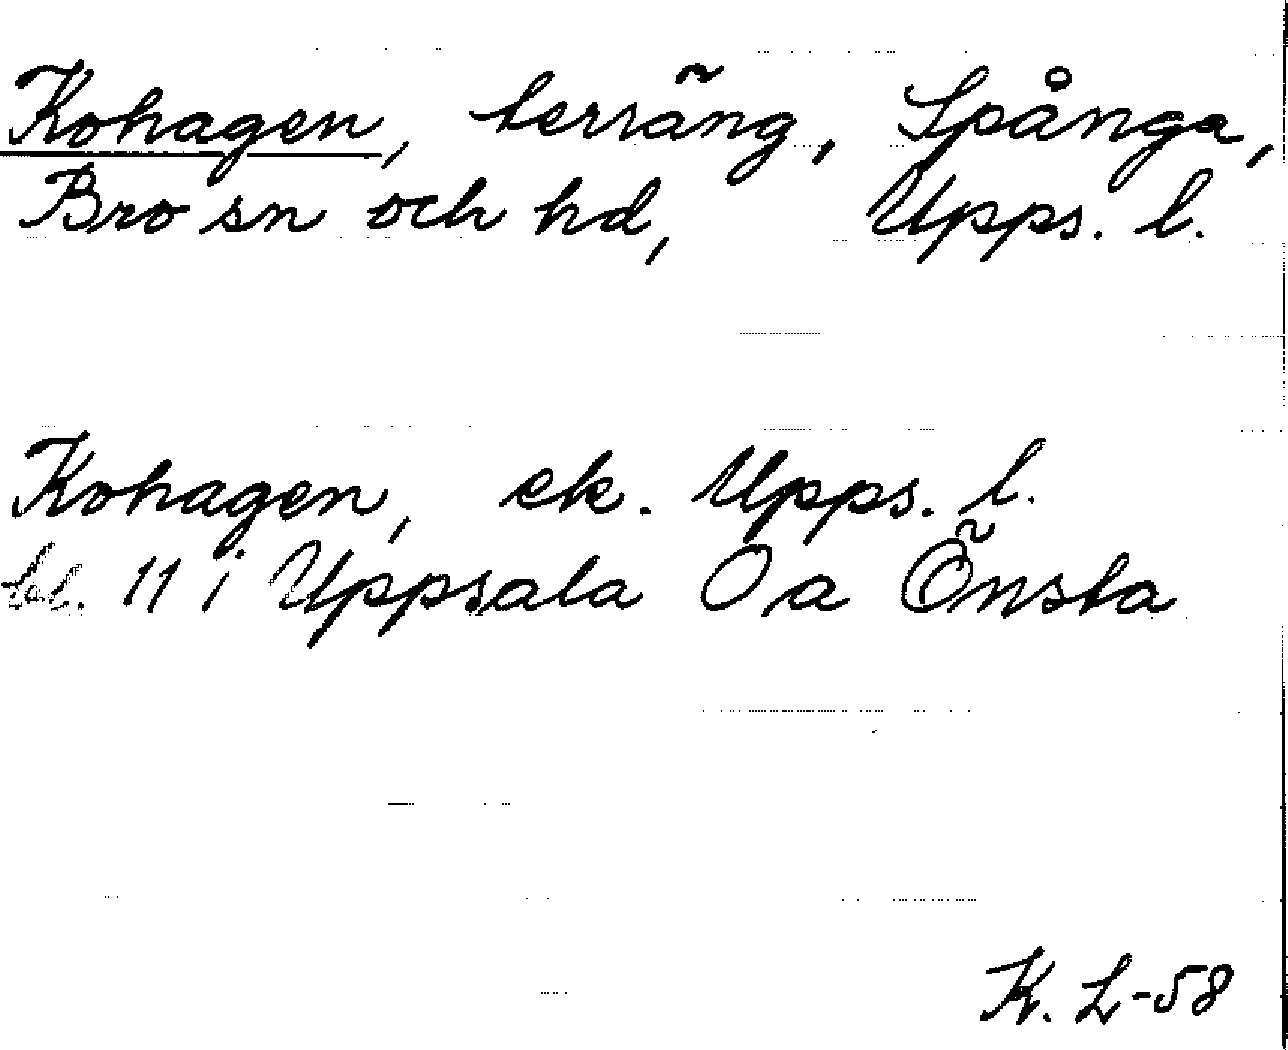 Kohagen, terräng, Spånga,
Bro sn och hd, Upps. l.
Kohagen, ek. Upps. l.
bl. 11 i Uppsala O a Önsta
K. L-58